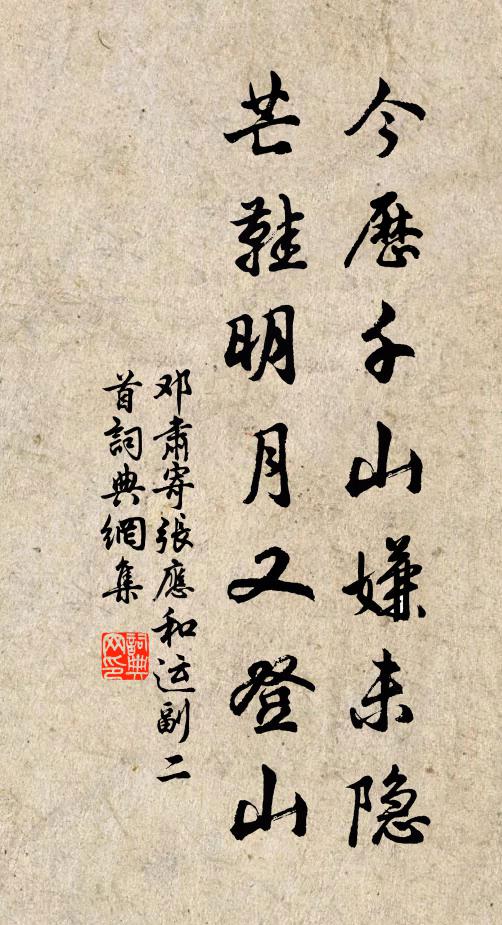 今歷千山嫌未隐
芒鞋明月又登山
邓肅寄張應和运副二
首詞典網集
詞典网印